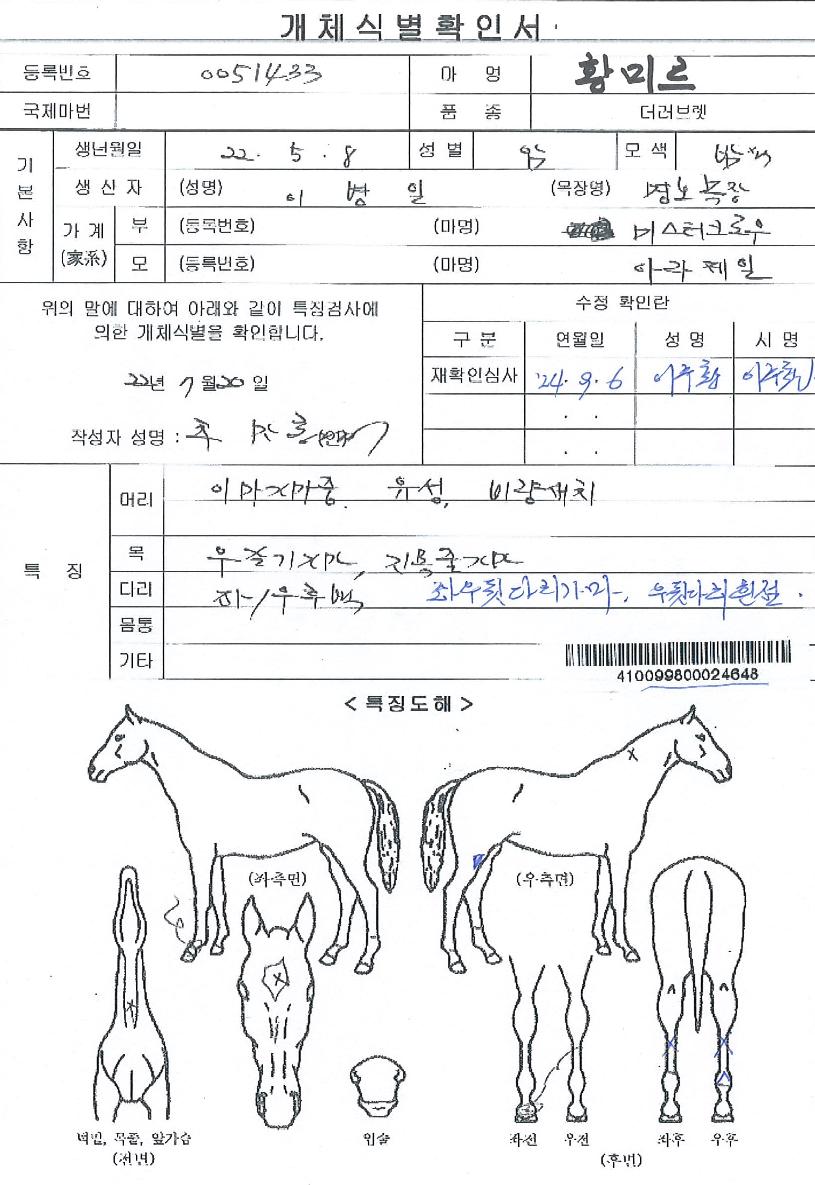 개체식별확인서
등록번호 0051433 마 명 황미르
국제마번 품 종 더러브렛
기본사항
생년월일 22. 5. 8 성별 암 모색
생산자 (성명) 이 병 일 (목장명) 목장
가계(家系) 부 (등록번호) (마명) 미스터크로우
모 (등록번호) (마명) 아라제일
위의 말에 대하여 아래와 같이 특징검사에
의한 개체식별을 확인합니다.
22년 7월20일
작성자 성명 :
수정 확인란
구 분 연월일 성 명 시 명
재확인심사 '24. 9. 6
. .
. .
특 징
머리 이마가마중. 유성, 비량새치
목 우즐기가마,
다리 좌/우후백 좌우뒷다리가마, 우뒷다리흰점.
몸통
기타
410099800024648
< 특징도해 >
(좌측면) (우측면)
턱밑, 목줄, 앞가슴
(전면)
입술
좌전 우전 좌후 우후
(후면)